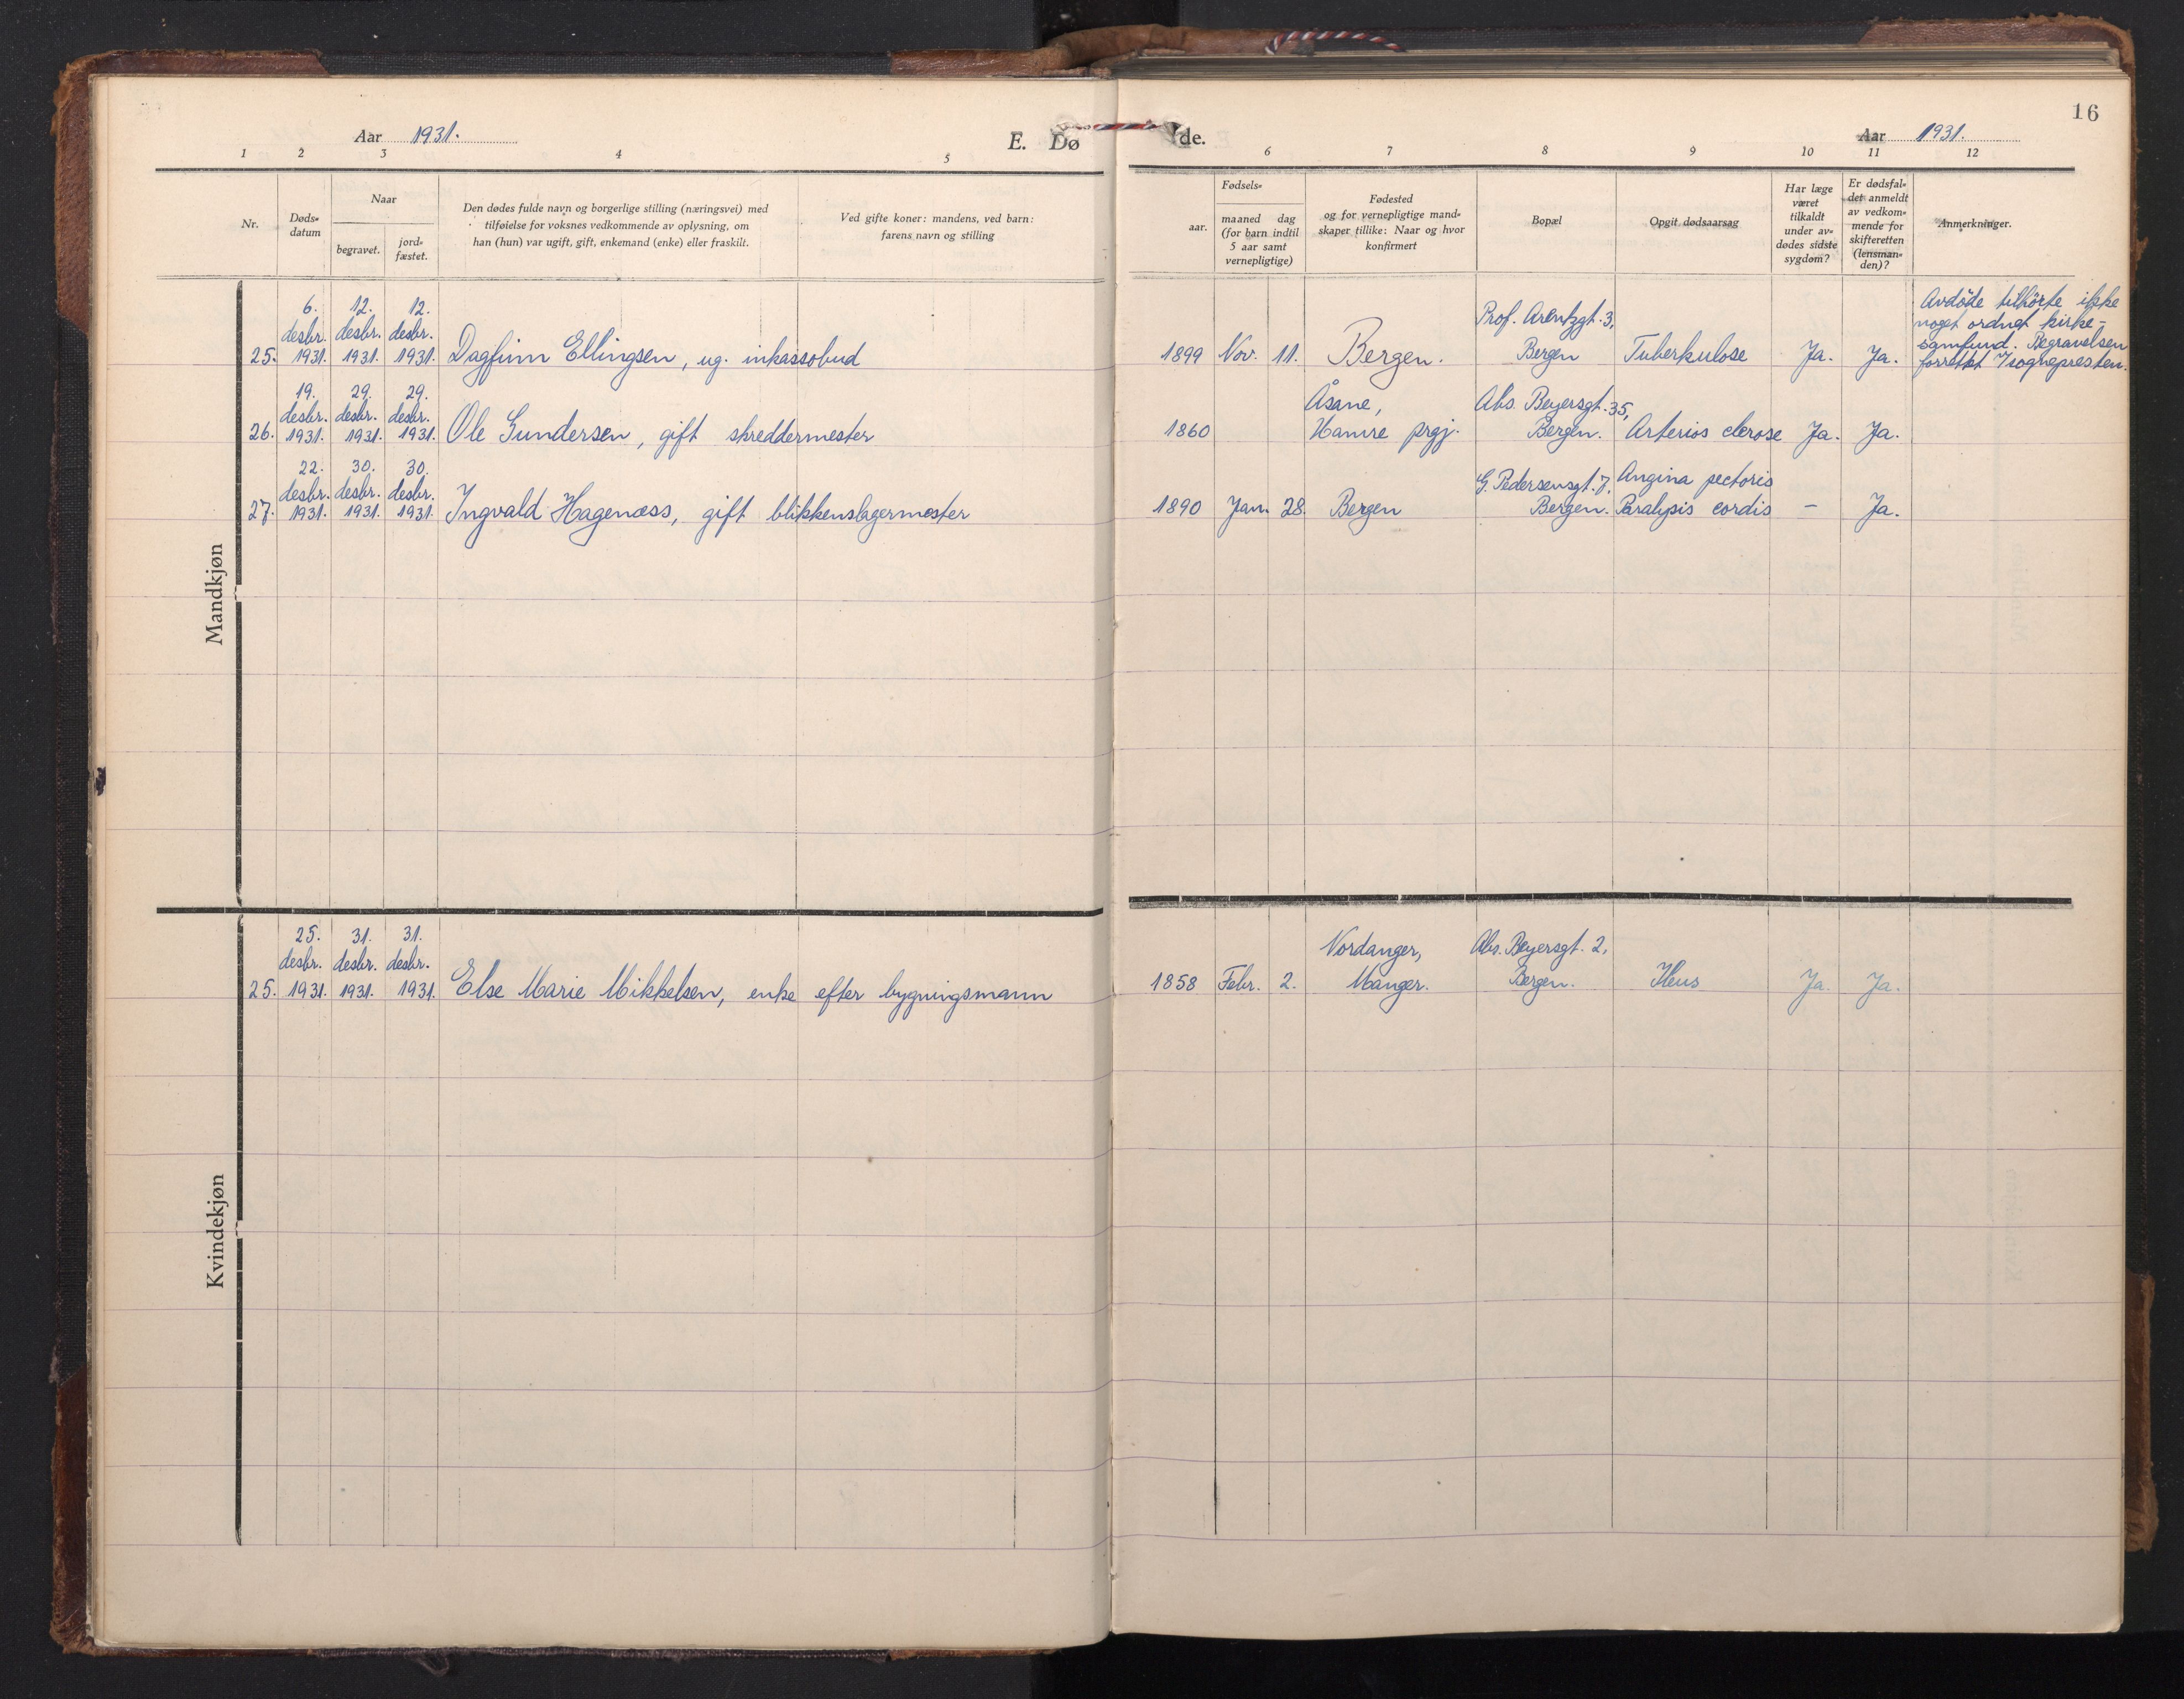 Aar 1931.
E. Dø
1 2 3 4 5
Nr.
Døds-
datum
Naar
begravet.
jord-
fæstet.
Den dødes fulde navn og borgerlige stilling (næringsvei) med
tilføielse for voksnes vedkommende av oplysning, om
han (hun) var ugift, gift, enkemand (enke) eller fraskilt.
Ved gifte koner: mandens, ved barn:
farens navn og stilling
Mandkjøn
6. 12. 12.
desbr. desbr. desbr.
25. 1931. 1931. 1931. Dagfinn Ellingsen, ug. inkassobud
19. 29. 29.
desbr. desbr. desbr.
26. 1931. 1931. 1931. Ole Gundersen, gift skreddermester
22. 30. 30.
desbr. desbr. desbr.
27. 1931. 1931. 1931. Ingvald Hagenæss, gift blikkenslagermester
Kvindekjøn
25. 31. 31.
desbr. desbr. desbr.
25. 1931. 1931. 1931. Else Marie Mikkelsen, enke efter bygningsmann
16
de.
Aar 1931.
6 7 8 9 10 11 12
aar.
Fødsels-
maaned dag
(for barn indtil
5 aar samt
vernepligtige)
Fødested
og for vernepligtige mand-
skaper tillike: Naar og hvor
konfirmert
Bopæl
Opgit dødsaarsag
Har læge
været
tilkaldt
under av-
dødes sidste
sygdom?
Er dødsfal-
det anmeldt
av vedkom-
mende for
skifteretten
(lensman-
den)?
Anmerkninger.
Prof. Arentzgt. 3,
1899 Nov. 11. Bergen. Bergen Tuberkulose Ja. Ja.
Avdöde tilhörte ikke
noget ordnet kirke-
samfund. Begravelsen
forrettet sognepresten.
Åsane, Abs. Beyersgt. 35,
1860 Hamre prgj. Bergen. Arterios clerose Ja. Ja.
G. Pedersensgt. 7, Angina pectoris
1890 Jan. 28. Bergen Bergen. Paralysis cordis – Ja.
Nordanger, Abs. Beyersgt. 2,
1858 Febr. 2. Manger. Bergen. Ileus Ja. Ja.